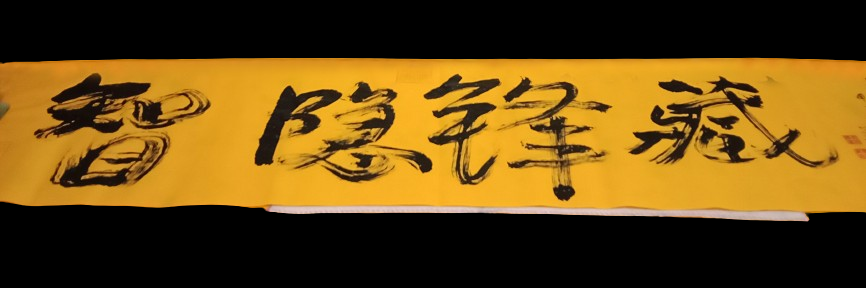 藏锋隐智